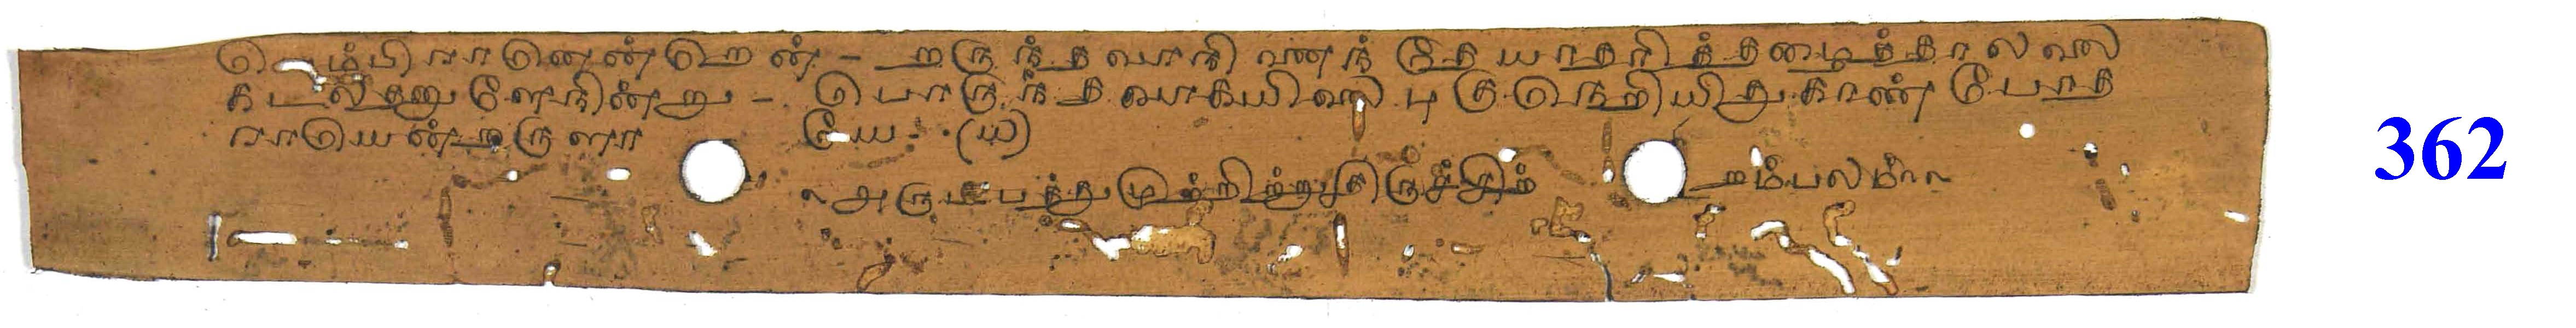 யெம்பிரானென்றென் - றருந்தவாநினைந்தேயாதரித்தழைத்தாலலை
கடலதனுளேநின்று - பொருந்தவாகயிலைபுகுநெறியிதுகாண்போத
ராயென்றருளாயே - (௰)
அருட்பத்துமுற்றிற்று திருச்சிற்றம்பலம்
362